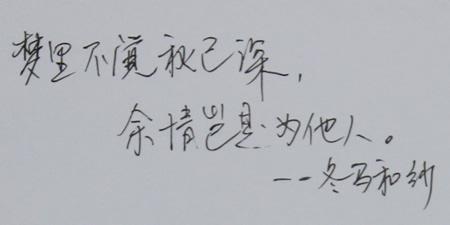 梦里不觉秋已深，
余情岂是为他人。
——冬马和纱